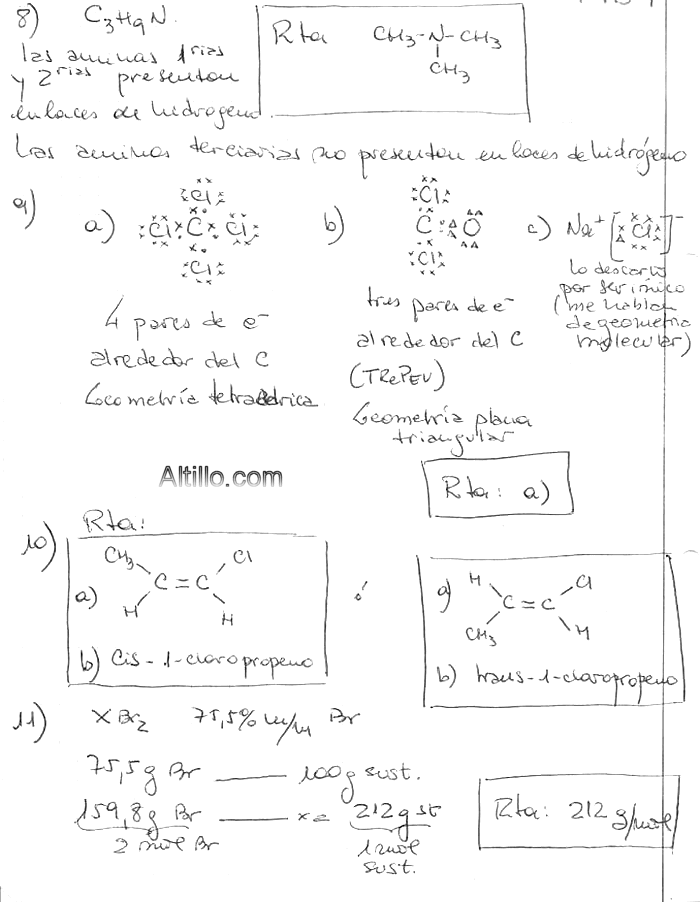 8) C3H9N.
las aminas 1rias
y 2rias presentan
enlaces de hidrogeno.
Rta CH3-N-CH3
CH3
las aminas terciarias no presentan enlaces de hidrógeno
9)
a) Cl
Cl C Cl
Cl
4 pares de e-
alrededor del C
Geometría tetraédrica
b) Cl
C O
Cl
tres pares de e-
alrededor del C
(TRePEV)
Geometría plana
triangular
c) Na+ [Cl]-
lo descarto
por ser iónico
(me hablan
de geometría
molecular)
Altillo.com
Rta: a)
10) Rta:
a) CH3 Cl
C=C
H H
b) Cis-1-cloropropeno
o'
a) H Cl
C=C
CH3 H
b) trans-1-cloropropeno
11) XBr2 75,5% m/m Br
75,5g Br 100g sust.
159,8g Br x= 212g st
2 mol Br 1 mol
sust.
Rta: 212 g/mol